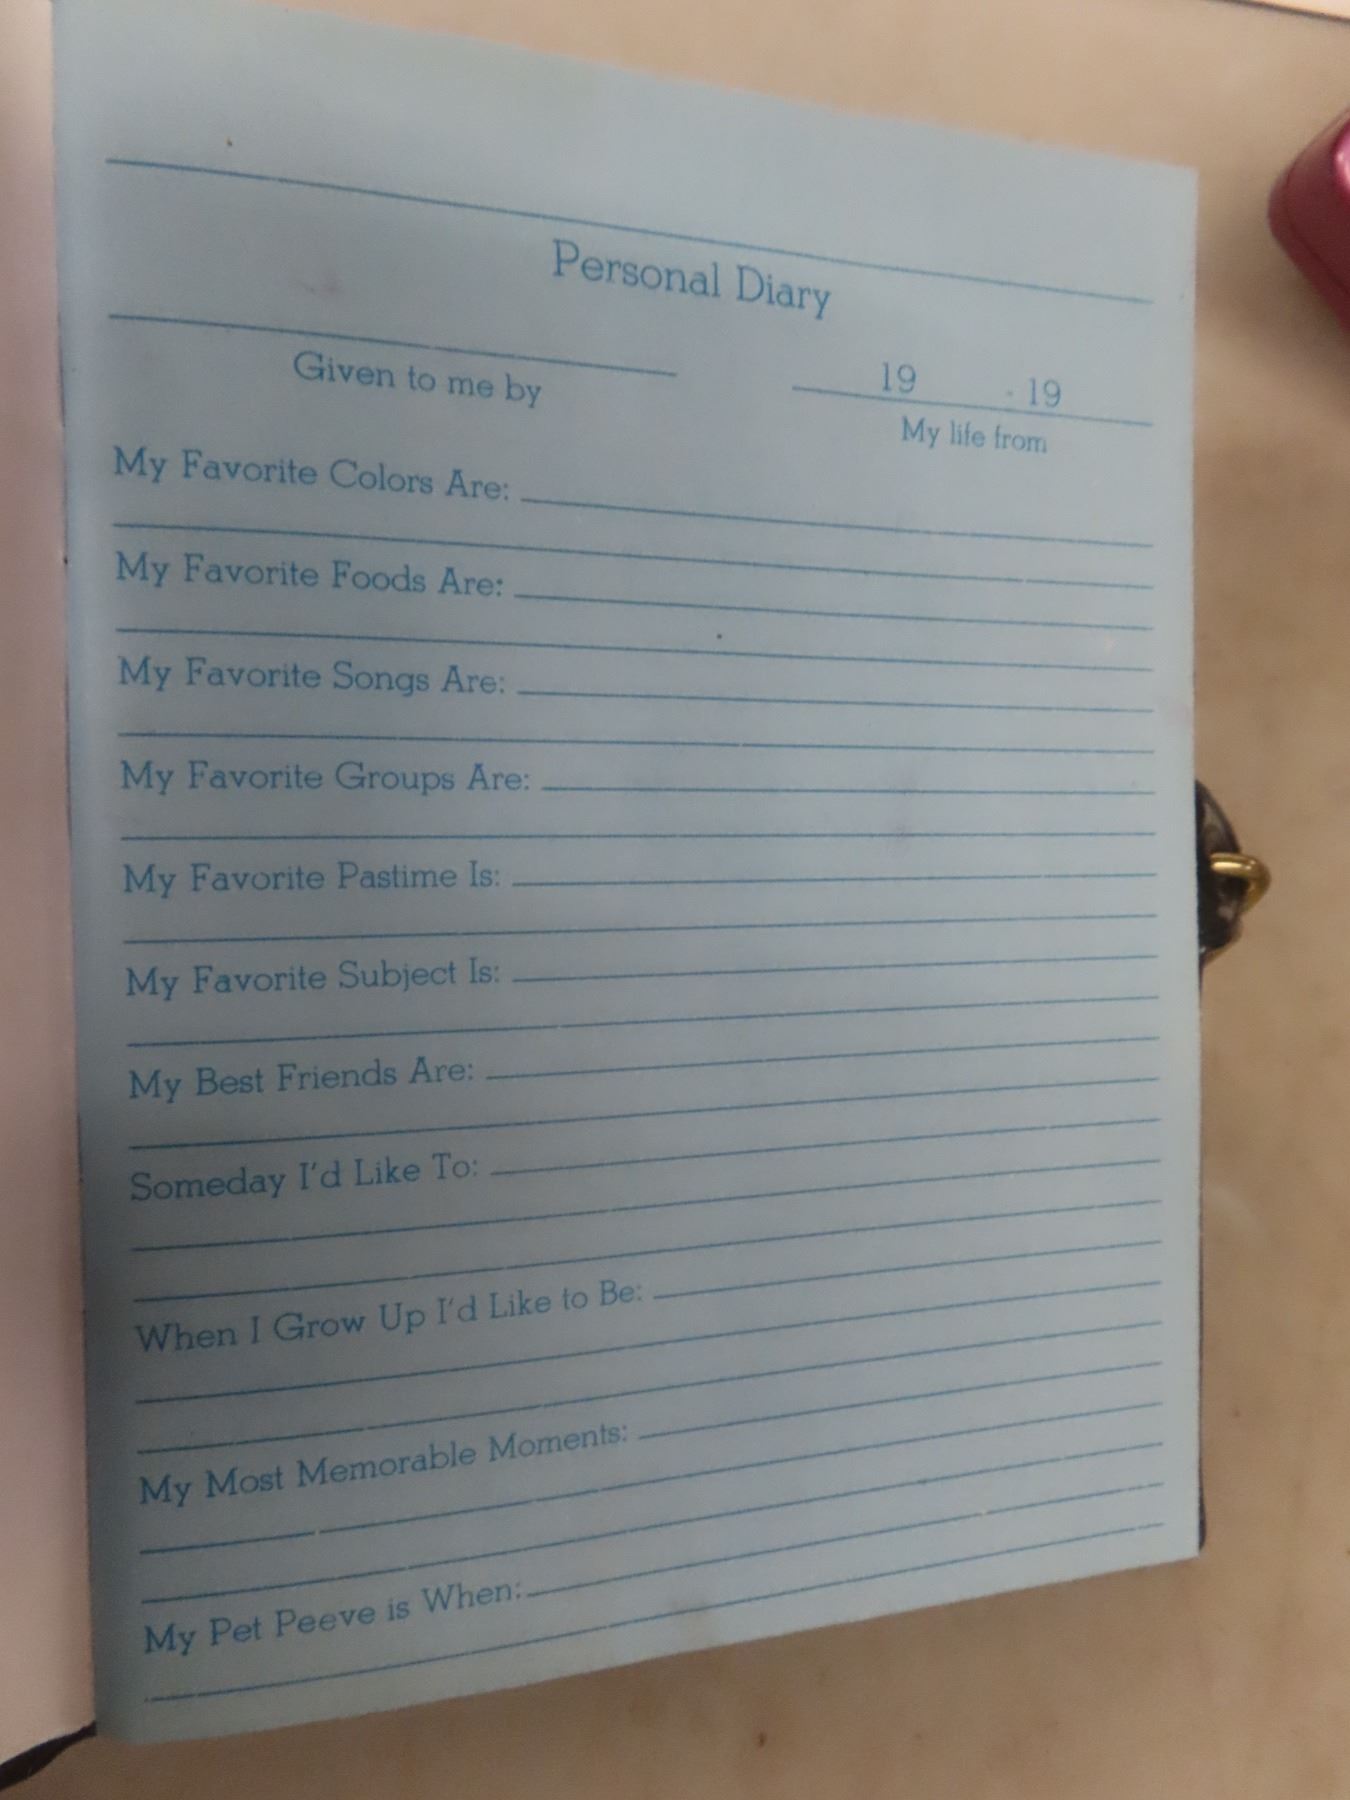 Personal Diary
Given to me by
19 - 19
My life from
My Favorite Colors Are:
My Favorite Foods Are:
My Favorite Songs Are:
My Favorite Groups Are:
My Favorite Pastime Is:
My Favorite Subject Is:
My Best Friends Are:
Someday I'd Like To:
When I Grow Up I'd Like to Be:
My Most Memorable Moments:
My Pet Peeve is When: